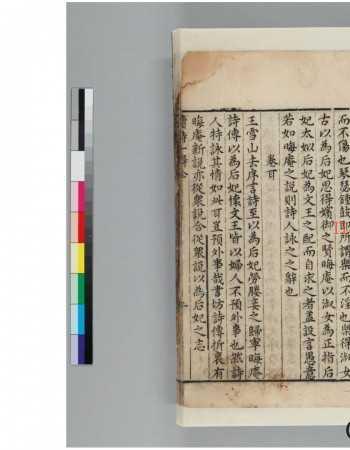 而不傷也琴瑟鍾鼓即所謂樂而不淫也樂得淑女
古以為后妃思得嬪御之賢晦庵以淑女為正指后
妃太姒后妃為文王之配而自求之者蓋設言愚意
若如晦庵之說則詩人詠之之辭也
卷耳
王雪山去序言詩至以為后妃勞媵妾之歸寧晦庵
詩傳以為后妃懷文王皆以婦人不預外事也然詩
人特詠其情如此耳豈預外事哉書坊詩傳折衷有
晦庵新說亦從衆說合從衆說以為后妃之志